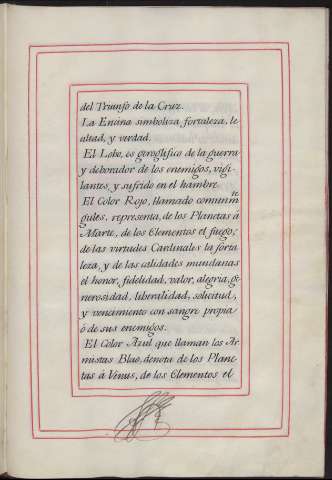 del Triunfo de la Cruz.
La Encina simboliza fortaleza, le
altad, y verdad.
El Lobo, es geroglifico de la guerra
y deborador de los enemigos, vigi-
lantes, y sufrido en el hambre.
El Color Rojo, llamado comunm.te
gules, representa, de los Planetas á
Marte, de los Clementos el fuego;
de las virtudes Cardinales la forta
leza, y de las calidades mundanas
el honor, fidelidad, valor, alegria, ge
nerosidad, liberalidad, solicitud,
y vencimiento con sangre propia
ó de sus enemigos.
El Color Azul que llaman los Ar-
mistas Blao, denota de los Plane-
tas á Venus, de los Elementos el